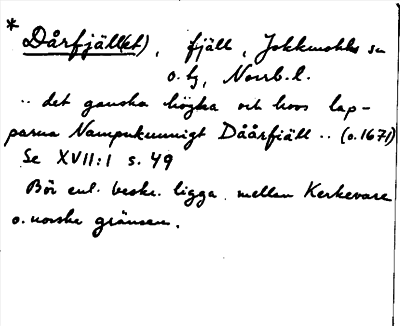 * Dårfjäll(et), fjäll, Jokkmokks sn
o. lg, Norrb. l.
.. det ganska högha och hoos lap-
parna Nampnkunnigt Däårfiäll .. (o. 1671)
Se XVII:1 s. 49
Bör enl. beskr. ligga mellan Kerkevare
o. norska gränsen.